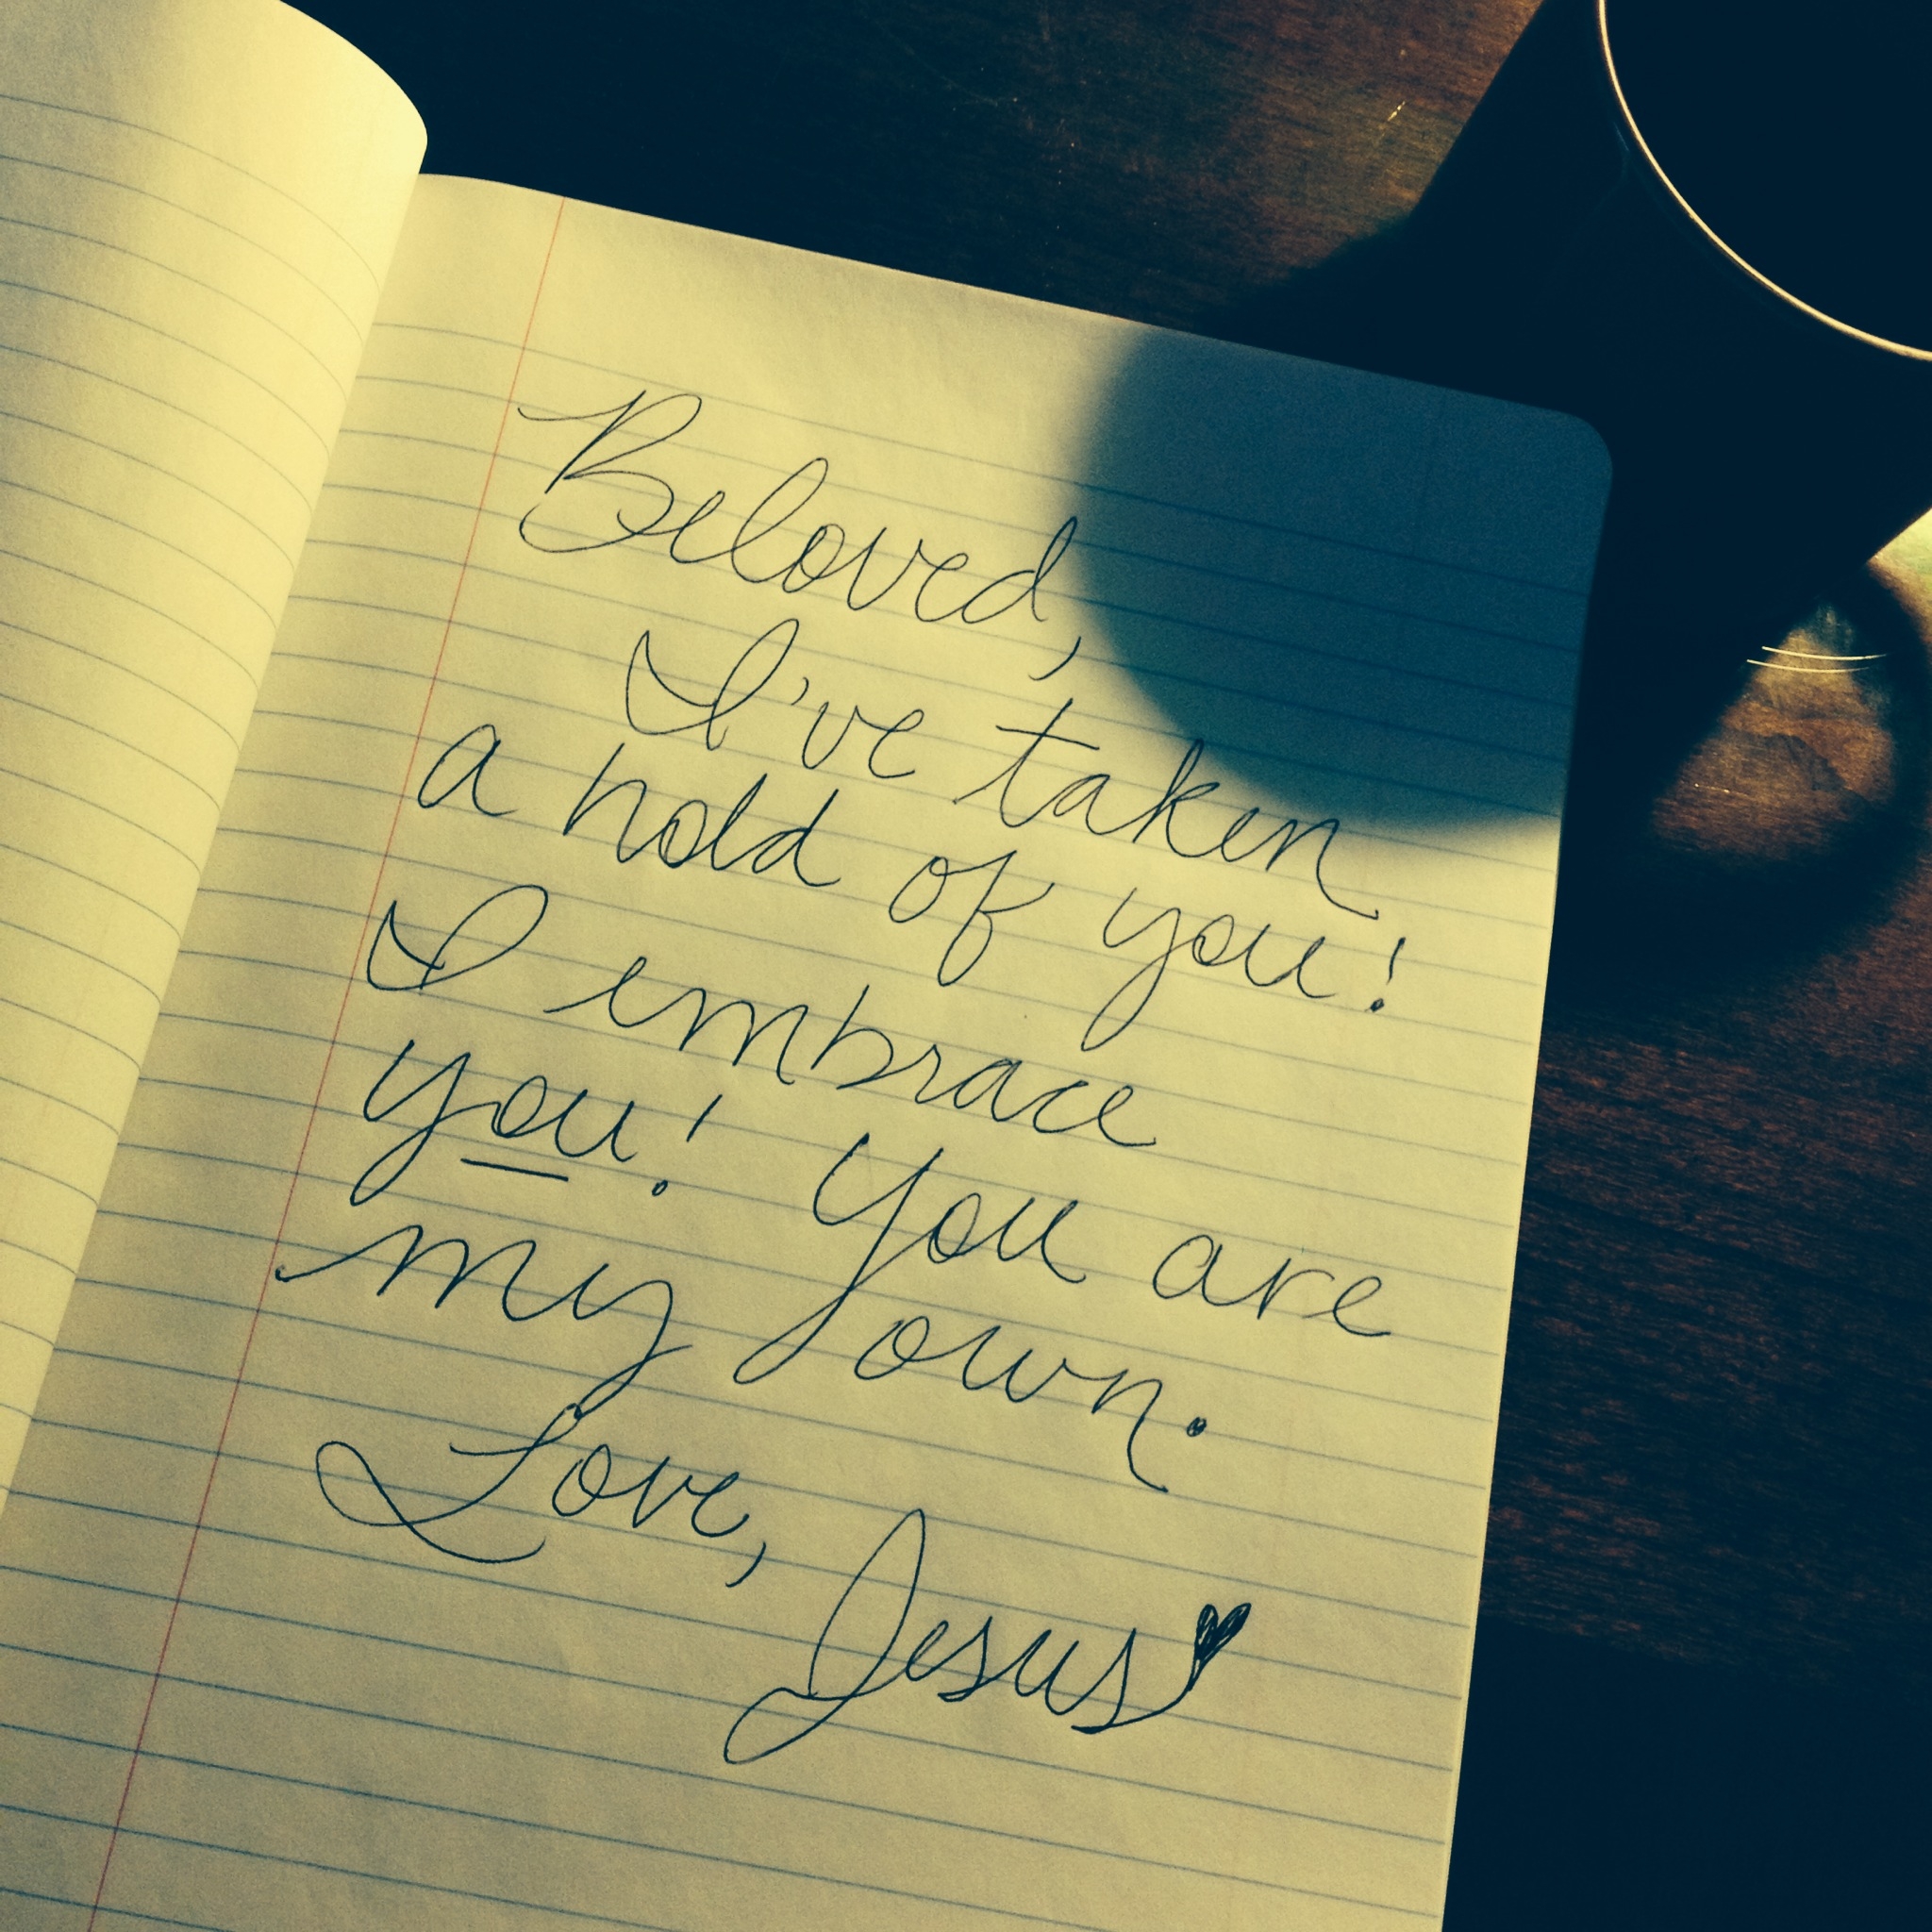 Beloved,
I've taken
a hold of you!
I embrace
you! You are
my own.
Love, Jesus♥